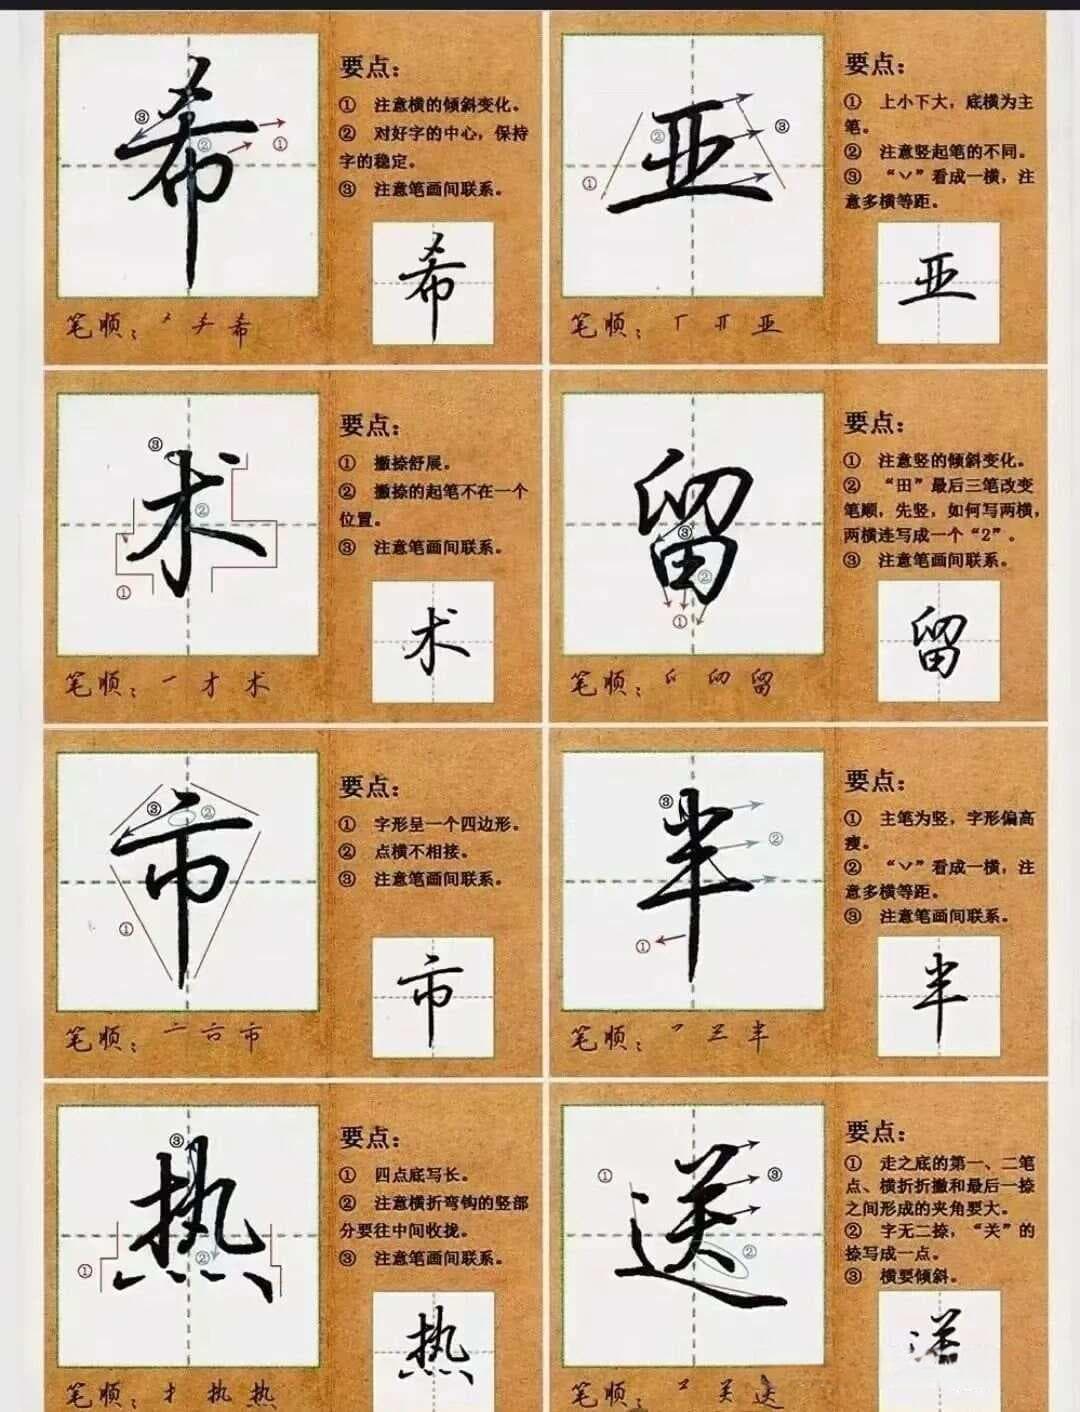 希
要点：
① 注意横的倾斜变化。
② 对好字的中心，保持
字的稳定。
③ 注意笔画间联系。
希
笔顺：
希
亚
要点：
① 上小下大，底横为主
笔。
② 注意竖起笔的不同。
③ “丷”看成一横，注
意多横等距。
亚
笔顺：
亚
术
要点：
① 撇捺舒展。
② 撇捺的起笔不在一个
位置。
③ 注意笔画间联系。
术
笔顺：一 才 术
留
要点：
① 注意竖的倾斜变化。
② “田”最后三笔改变
笔顺，先竖，如何写两横，
两横连写成一个“2”。
③ 注意笔画间联系。
留
笔顺：
留
市
要点：
① 字形呈一个四边形。
② 点横不相接。
③ 注意笔画间联系。
市
笔顺：亠
市
半
要点：
① 主笔为竖，字形偏高
瘦。
② “丷”看成一横，注
意多横等距。
③ 注意笔画间联系。
半
笔顺：
半
热
要点：
① 四点底写长。
② 注意横折弯钩的竖部
分要往中间收拢。
③ 注意笔画间联系。
热
笔顺：扌 执 热
送
要点：
① 走之底的第一、二笔
点、横折折撇和最后一捺
之间形成的夹角要大。
② 字无二捺，“关”的
捺写成一点。
③ 横要倾斜。
送
笔顺：
关 送